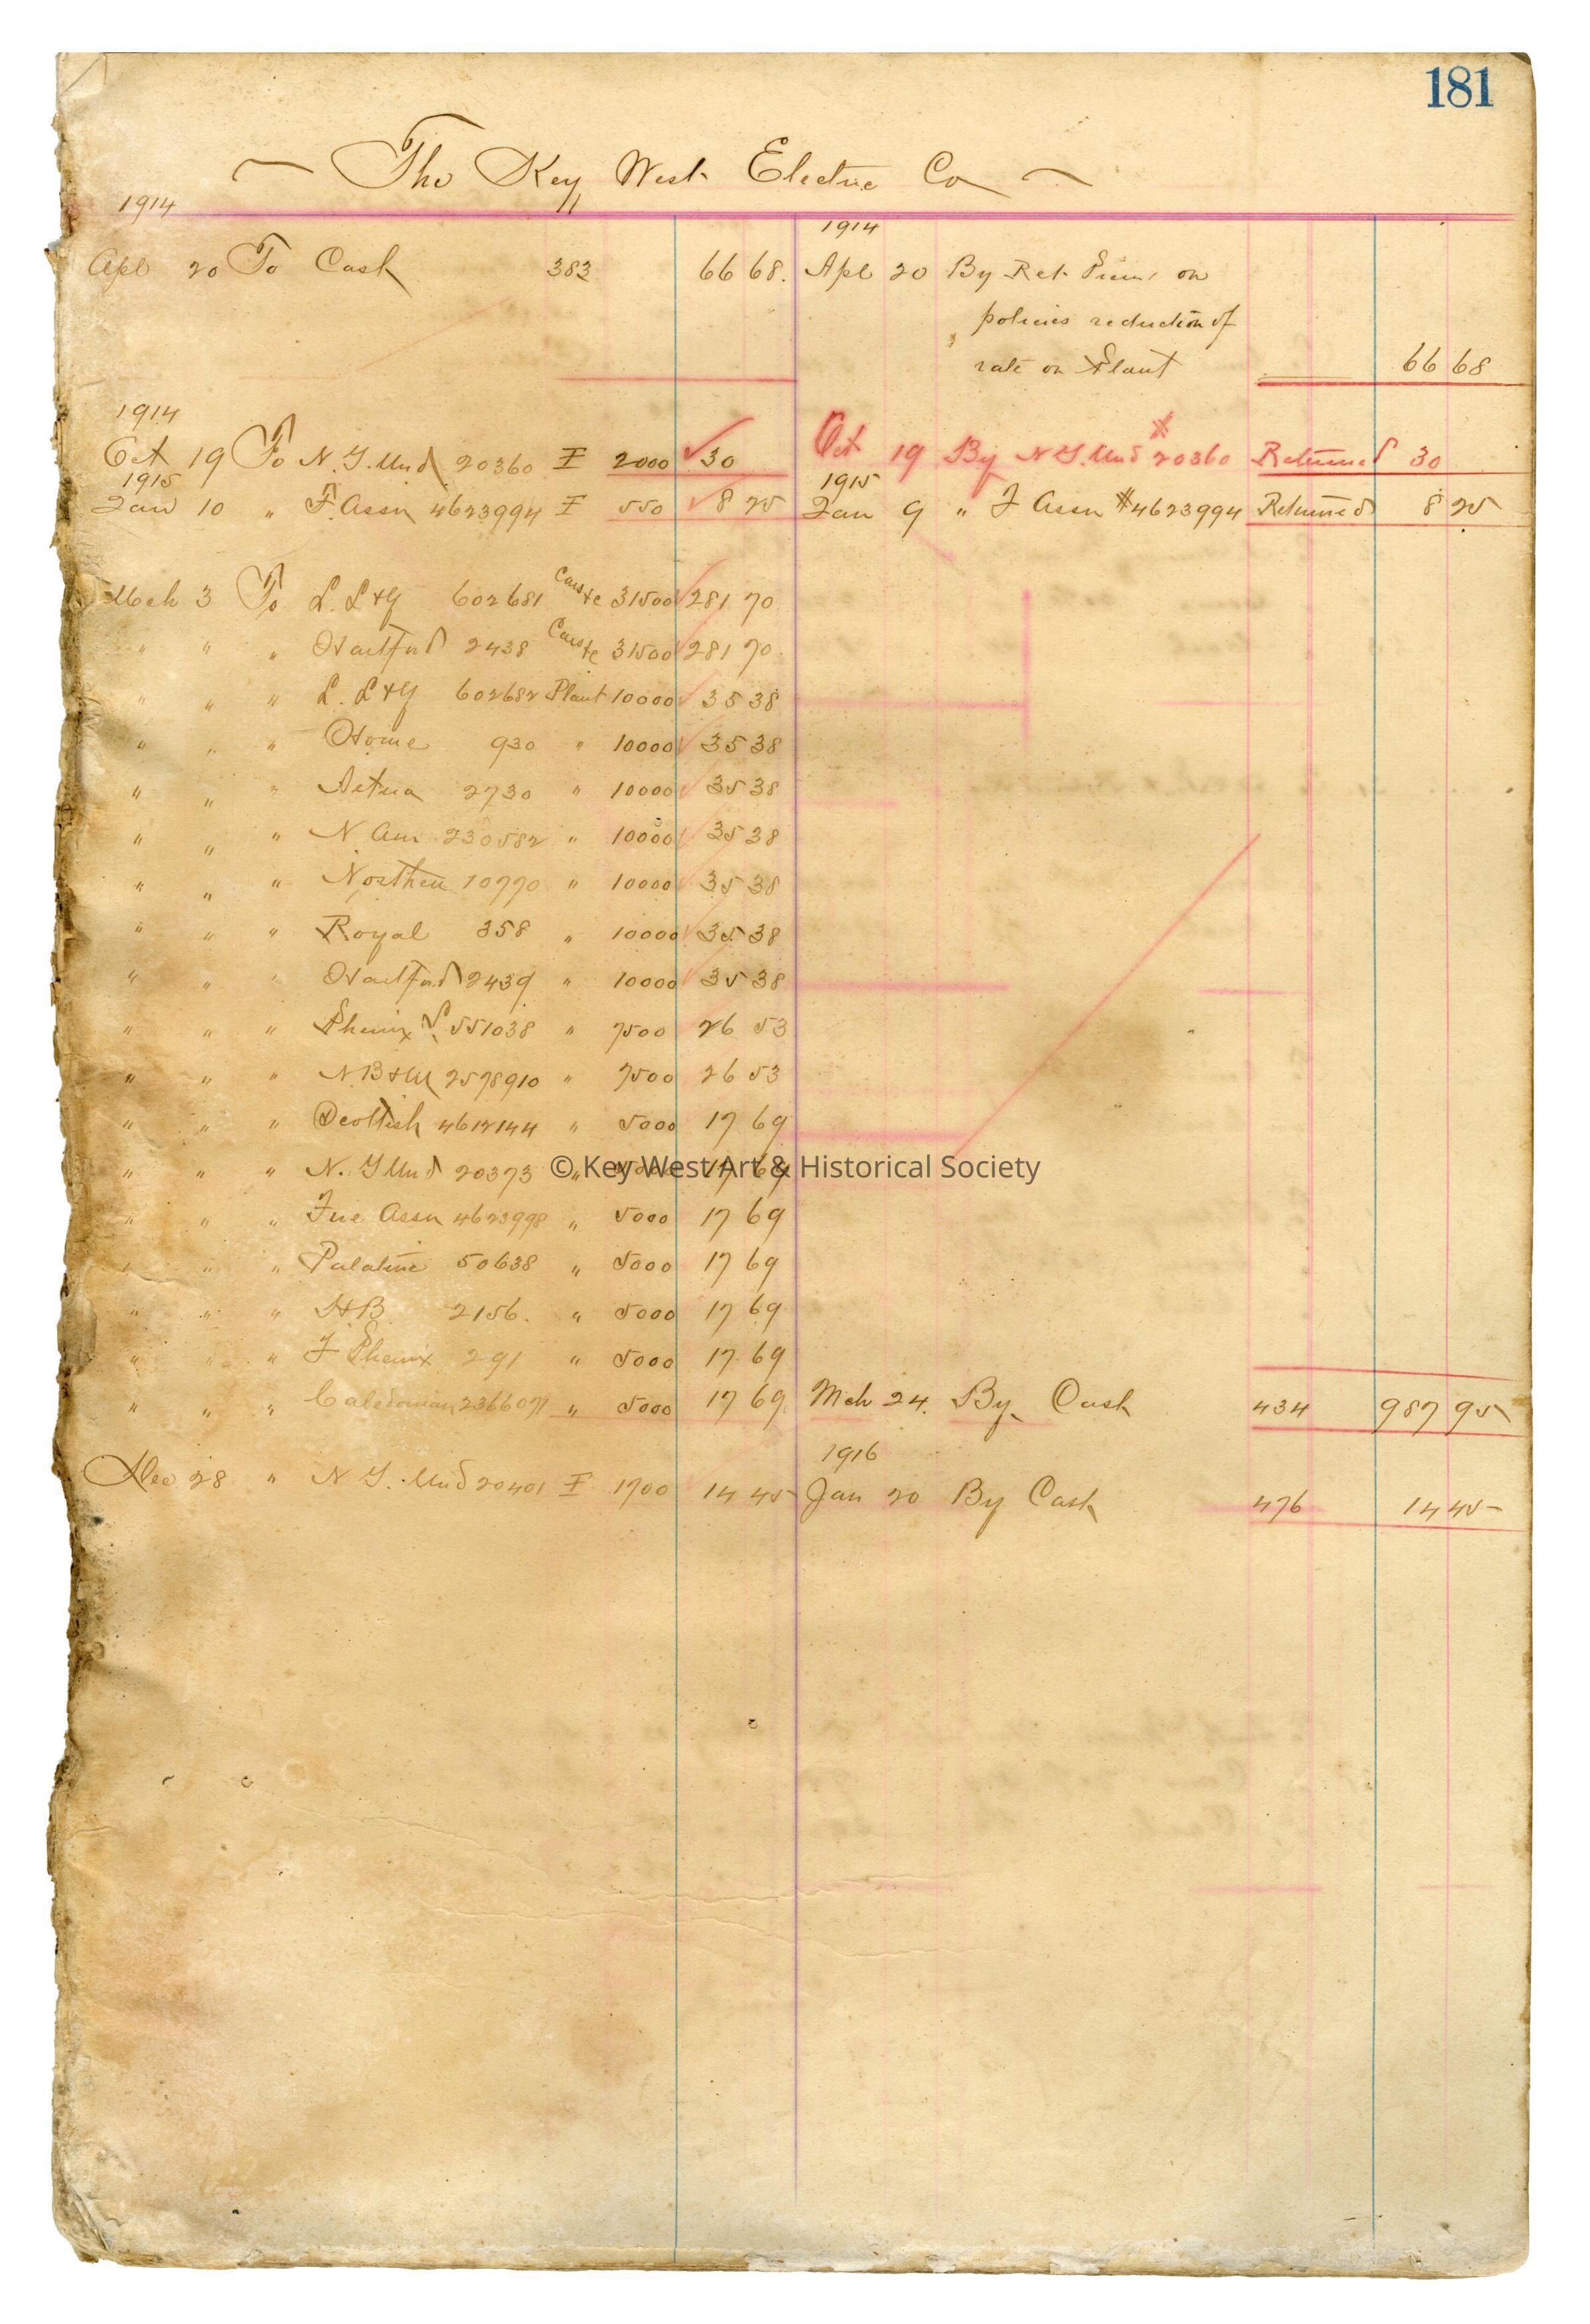 181
The Key West Electric Co
1914
Apl 20 To Cash 383 66 68.
1914
Oct 19 To N.Y. Und 20360 F 2000 30
1915
Jan 10 " F. Assn 4623994 F 550 8 25
Mch 3 To L. L & G 602681 Cars &c 31500 281 70
" " " Hartford 2438 Cars &c 31500 281 70
" " " L. L & G 602682 Plant 10000 35 38
" " " Home 930 " 10000 35 38
" " " Aetna 2730 " 10000 35 38
" " " N. Am 230582 " 10000 35 38
" " " Northern 10770 " 10000 35 38
" " " Royal 358 " 10000 35 38
" " " Hartford 2439 " 10000 35 38
" " " Phenix L. 551038 " 7500 26 53
" " " N.B & M 2578910 " 7500 26 53
" " " Scottish 4612144 " 5000 17 69
" " " N. Y Und 20373 " 5000 17 69
" " " Fire Assn 4623998 " 5000 17 69
" " " Palatine 50638 " 5000 17 69
" " " H B 2156. " 5000 17 69
" " " F Phenix 291 " 5000 17 69
" " " Caledonian 2366071 " 5000 17 69
Dec 28 " N Y. Und 20401 F 1700 14 45
1914
Apl 20 By Ret. Prem. on
policies reduction of
rate on Plant 66 68
Oct 19 By N Y. Und #20360 Returned 30
1915
Jan 9 " F Assn #4623994 Returned 8 25
Mch 24. By Cash 434 987 95
1916
Jan 20 By Cash 476 14 45
© Key West Art & Historical Society